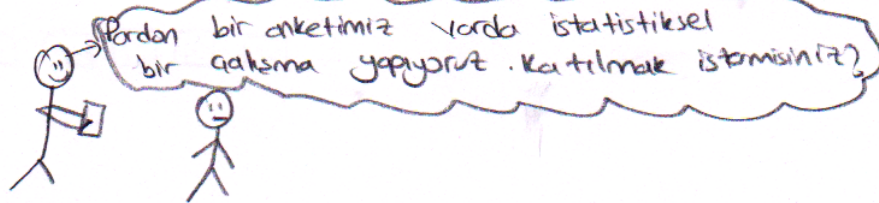 Pardon bir anketimiz varda istatistiksel
bir çalışma yapıyoruz. Katılmak istermisiniz?